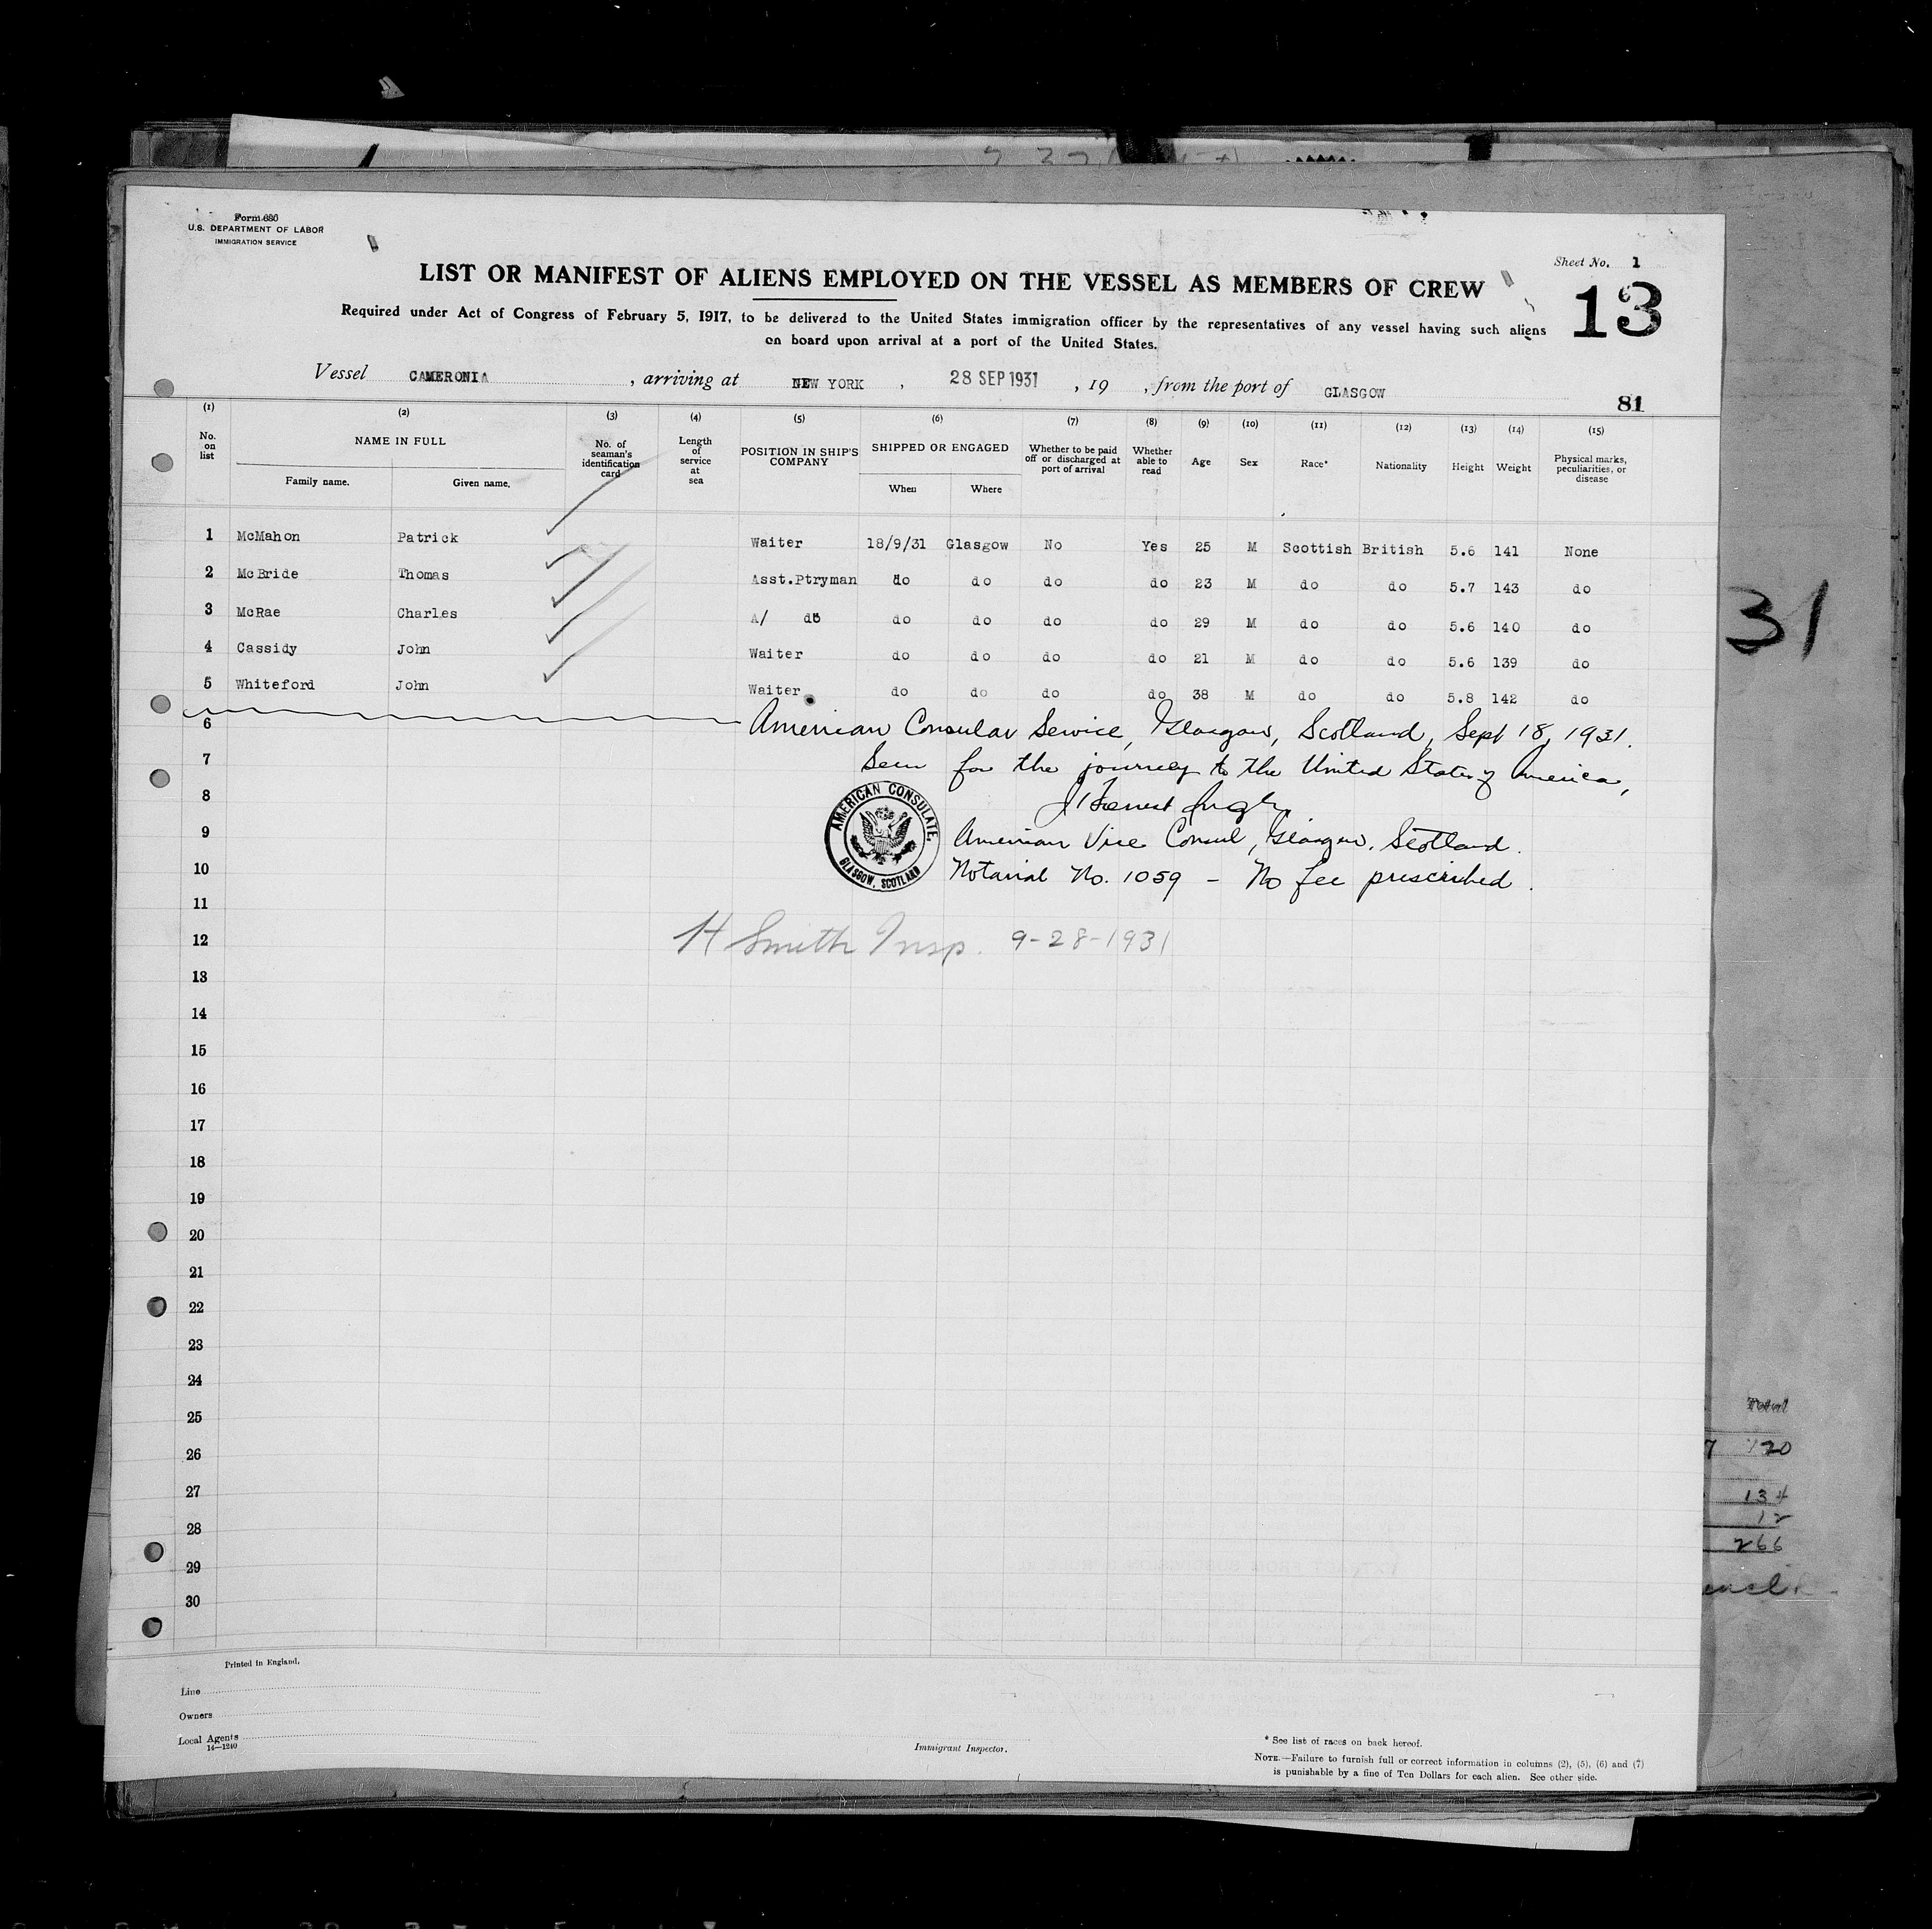 Form 680
U.S. DEPARTMENT OF LABOR
IMMIGRATION SERVICE
Sheet No. 1
LIST OR MANIFEST OF ALIENS EMPLOYED ON THE VESSEL AS MEMBERS OF CREW
13
Required under Act of Congress of February 5, 1917, to be delivered to the United States immigration officer by the representatives of any vessel having such aliens
on board upon arrival at a port of the United States.
Vessel CAMERONIA, arriving at NEW YORK, 28 SEP 1931, 19 , from the port of GLASGOW
81
(1) (2) (3) (4) (5) (6) (7) (8) (9) (10) (11) (12) (13) (14) (15)
No. on list NAME IN FULL Family name. Given name. No. of seaman's identification card Length of service at sea POSITION IN SHIP'S COMPANY SHIPPED OR ENGAGED When Where Whether to be paid off or discharged at port of arrival Whether able to read Age Sex Race* Nationality Height Weight Physical marks, peculiarities, or disease
1 McMahon Patrick Waiter 18/9/31 Glasgow No Yes 25 M Scottish British 5.6 141 None
2 McBride Thomas Asst.Ptryman do do do do 23 M do do 5.7 143 do
3 McRae Charles A/ do do do do do 29 M do do 5.6 140 do
4 Cassidy John Waiter do do do do 21 M do do 5.6 139 do
5 Whiteford John Waiter do do do do 38 M do do 5.8 142 do
6 American Consular Service, Glasgow, Scotland, Sept 18, 1931.
7 Seen for the journey to the United States of America,
8
AMERICAN CONSULATE, GLASGOW, SCOTLAND
9 American Vice Consul, Glasgow, Scotland.
10 Notarial No. 1059 - No fee prescribed.
11
12 H Smith Insp. 9-28-1931
13
14
15
16
17
18
19
20
21
22
23
24
25
26
27
28
29
30
31
Total
120
134
12
266
Printed in England.
Line
Owners
Local Agents
14—1240
Immigrant Inspector.
* See list of races on back hereof.
NOTE.—Failure to furnish full or correct information in columns (2), (5), (6) and (7)
is punishable by a fine of Ten Dollars for each alien. See other side.